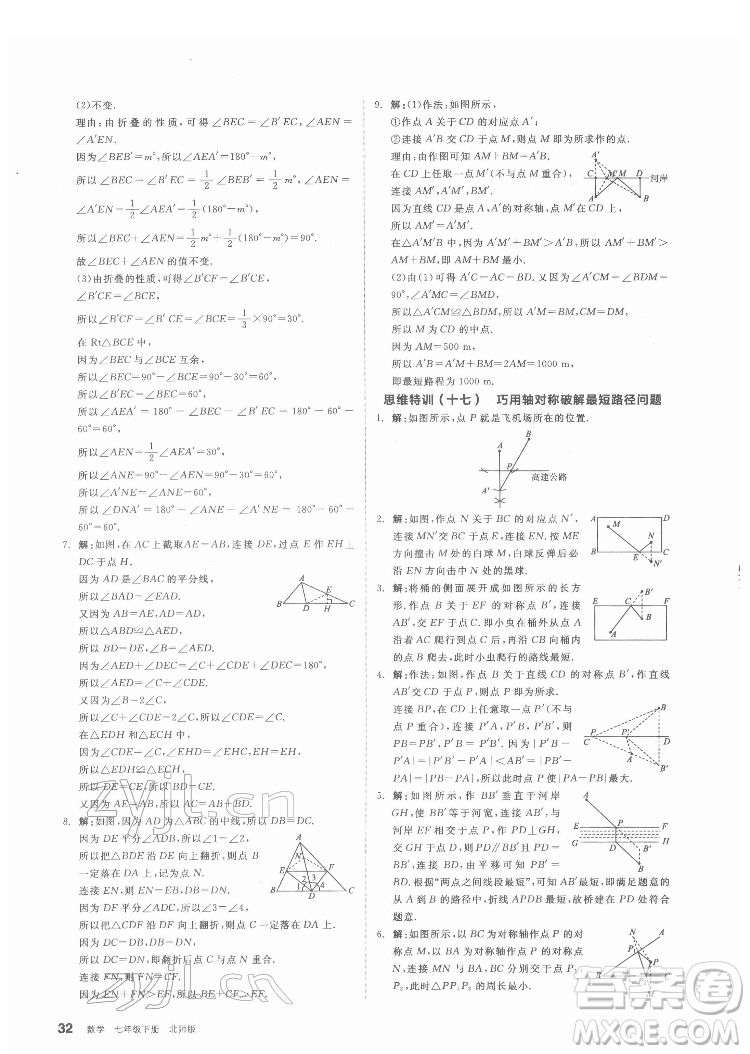 (2)不变.
理由:由折叠的性质,可得∠BEC=∠B′EC,∠AEN
=∠A′EN.
因为∠BEB′=m°,所以∠AEA′=180°-m°.
所以∠BEC=∠B′EC=1/2∠BEB′=1/2m°,
∠AEN=∠A′EN=1/2∠AEA′=1/2(180°-m°).
所以∠BEC+∠AEN=1/2m°+1/2(180°-m°)
=90°.
故∠BEC+∠AEN的值不变.
(3)由折叠的性质,可得∠B′CF=∠B′CE,
∠B′CE=∠BCE,
所以∠B′CF=∠B′CE=∠BCE=1/3×90°=30°.
在Rt△BCE中,
因为∠BEC与∠BCE互余,
所以∠BEC=90°-∠BCE=90°-30°=60°.
所以∠B′EC=∠BEC=60°.
所以∠AEA′=180°-∠BEC-∠B′EC=180°-60°
-60°=60°.
所以∠AEN=1/2∠AEA′=30°.
所以∠ANE=90°-∠AEN=90°-30°=60°.
所以∠A′NE=∠ANE=60°.
所以∠DNA′=180°-∠ANE-∠A′NE=180°-60°-
60°=60°.
7. 解:如图,在AC上截取AE=AB,连接DE,过点E作EH⊥
DC于点H.
因为AD为∠BAC的平分线,
所以∠BAD=∠EAD.
又因为AB=AE,AD=AD,
所以△ABD≌△AED.
所以BD=DE,∠B=∠AED.
因为∠B=2∠C,
所以∠AED=2∠C.
又因为∠AED=∠C+∠EDC,
所以∠C=∠EDC.
在△EDH和△ECH中,
因为∠EDC=∠C,∠EHD=∠EHC,EH=EH,
所以△EDH≌△ECH.
所以ED=EC.
所以BD=EC.
又因为AC=AE+EC,
所以AC=AB+BD.
8. 解:因为AD为△ABC的中线,所以BD=DC.
如图,因为∠1=∠2,所以将△BDE沿DE向上翻折,点B
一定落在DA上,记为点N.
连接EN,则BE=EN,BD=DN.
因为DF平分∠ADC,所以∠3=∠4.
所以△CDF沿DF向上翻折后,点C一定落在DA上.
因为DC=BD,即翻折后点C与点N重合.
连接FN,则FN=CF.
因为EN+FN>EF,
所以BE+CF>EF.
9. 解:(1)作法:如图所示,
①作点A关于CD的对应点A′;
②连接A′B交CD于点M,点M即为所求的点.
理由:由作图可知AM+BM=A′B.
在CD上任取一点M′(不与点M重合),
连接AM′,A′M′,BM′.
因为直线CD是A,A′的对称轴,点M,M′在CD上,
所以AM=A′M,AM′=A′M′.
在△A′M′B中,因为A′M′+BM′>A′B,所以AM′+BM′>
AM+BM,即AM+BM最小.
(2)由(1)可得A′C=AC=BD.又因为∠A′CM=∠BDM=
90°,∠A′MC=∠BMD,
所以△A′CM≌△BDM.所以A′M=BM,CM=DM.
所以M为CD的中点.
因为AM=500 m,
所以AM+BM=A′M+BM=2AM=1000 m.
即最短路程为1000 m.
思维特训(十七) 巧用轴对称破解最短路径问题
1. 解:如图所示,点P就是飞机场所在的位置.
2. 解:如图,作点N关于BC的对应点N′,
连接MN′交BC于点E,则点E就是应
该撞击的位置,即白球M撞击点E反弹后
必能击中N处的黑球.
3. 解:将桶的侧面展开成如图所示的长方
形.作点B关于EF的对称点B′,连接
AB′,交EF于点C,连接BC,则小虫从点A
沿着AC爬行到点C后,再沿CB向桶内
爬行到点B,小虫所爬行的路线最短.
4. 解:作法:如图,作点B关于直线CD的对称点B′,连接
AB′交CD于点P,则点P即为所求.
连接BP,在CD上任意取一点P′(不与
点P重合),连接P′A,P′B,P′B′,则
PB=PB′,P′B=P′B′.所以|P′B-
P′A|=|P′B′-P′A|<AB′=|PB′-
PA|=|PB-PA|.所以|PB-PA|最大.
5. 解:如图,作BB′垂直于河岸
GH,使BB′等于河宽,连接AB′,
与河岸EF相交于点P,作PD⊥
GH,交GH于点D,则PD∥BB′且
PD=BB′,由平移可知PB′=BD.
根据“两点之间线段最短”,可知AB′最短,即满足题意的
从A到B的路径中,折线APDB最短,故桥建在PD处符合
题意.
6. 解:如图,作点P以OA为对称轴的对
称点P₁,以BA为对称轴的对称点P₂,
连接P₁P₂与OA,BA交点分别为点M,
32 数学 七年级下册 北师版
A
B
D
H
C
E
N
F
1
2
3
4
河岸
高速公路
zyjl.cn
zyjl.cn
作业精灵